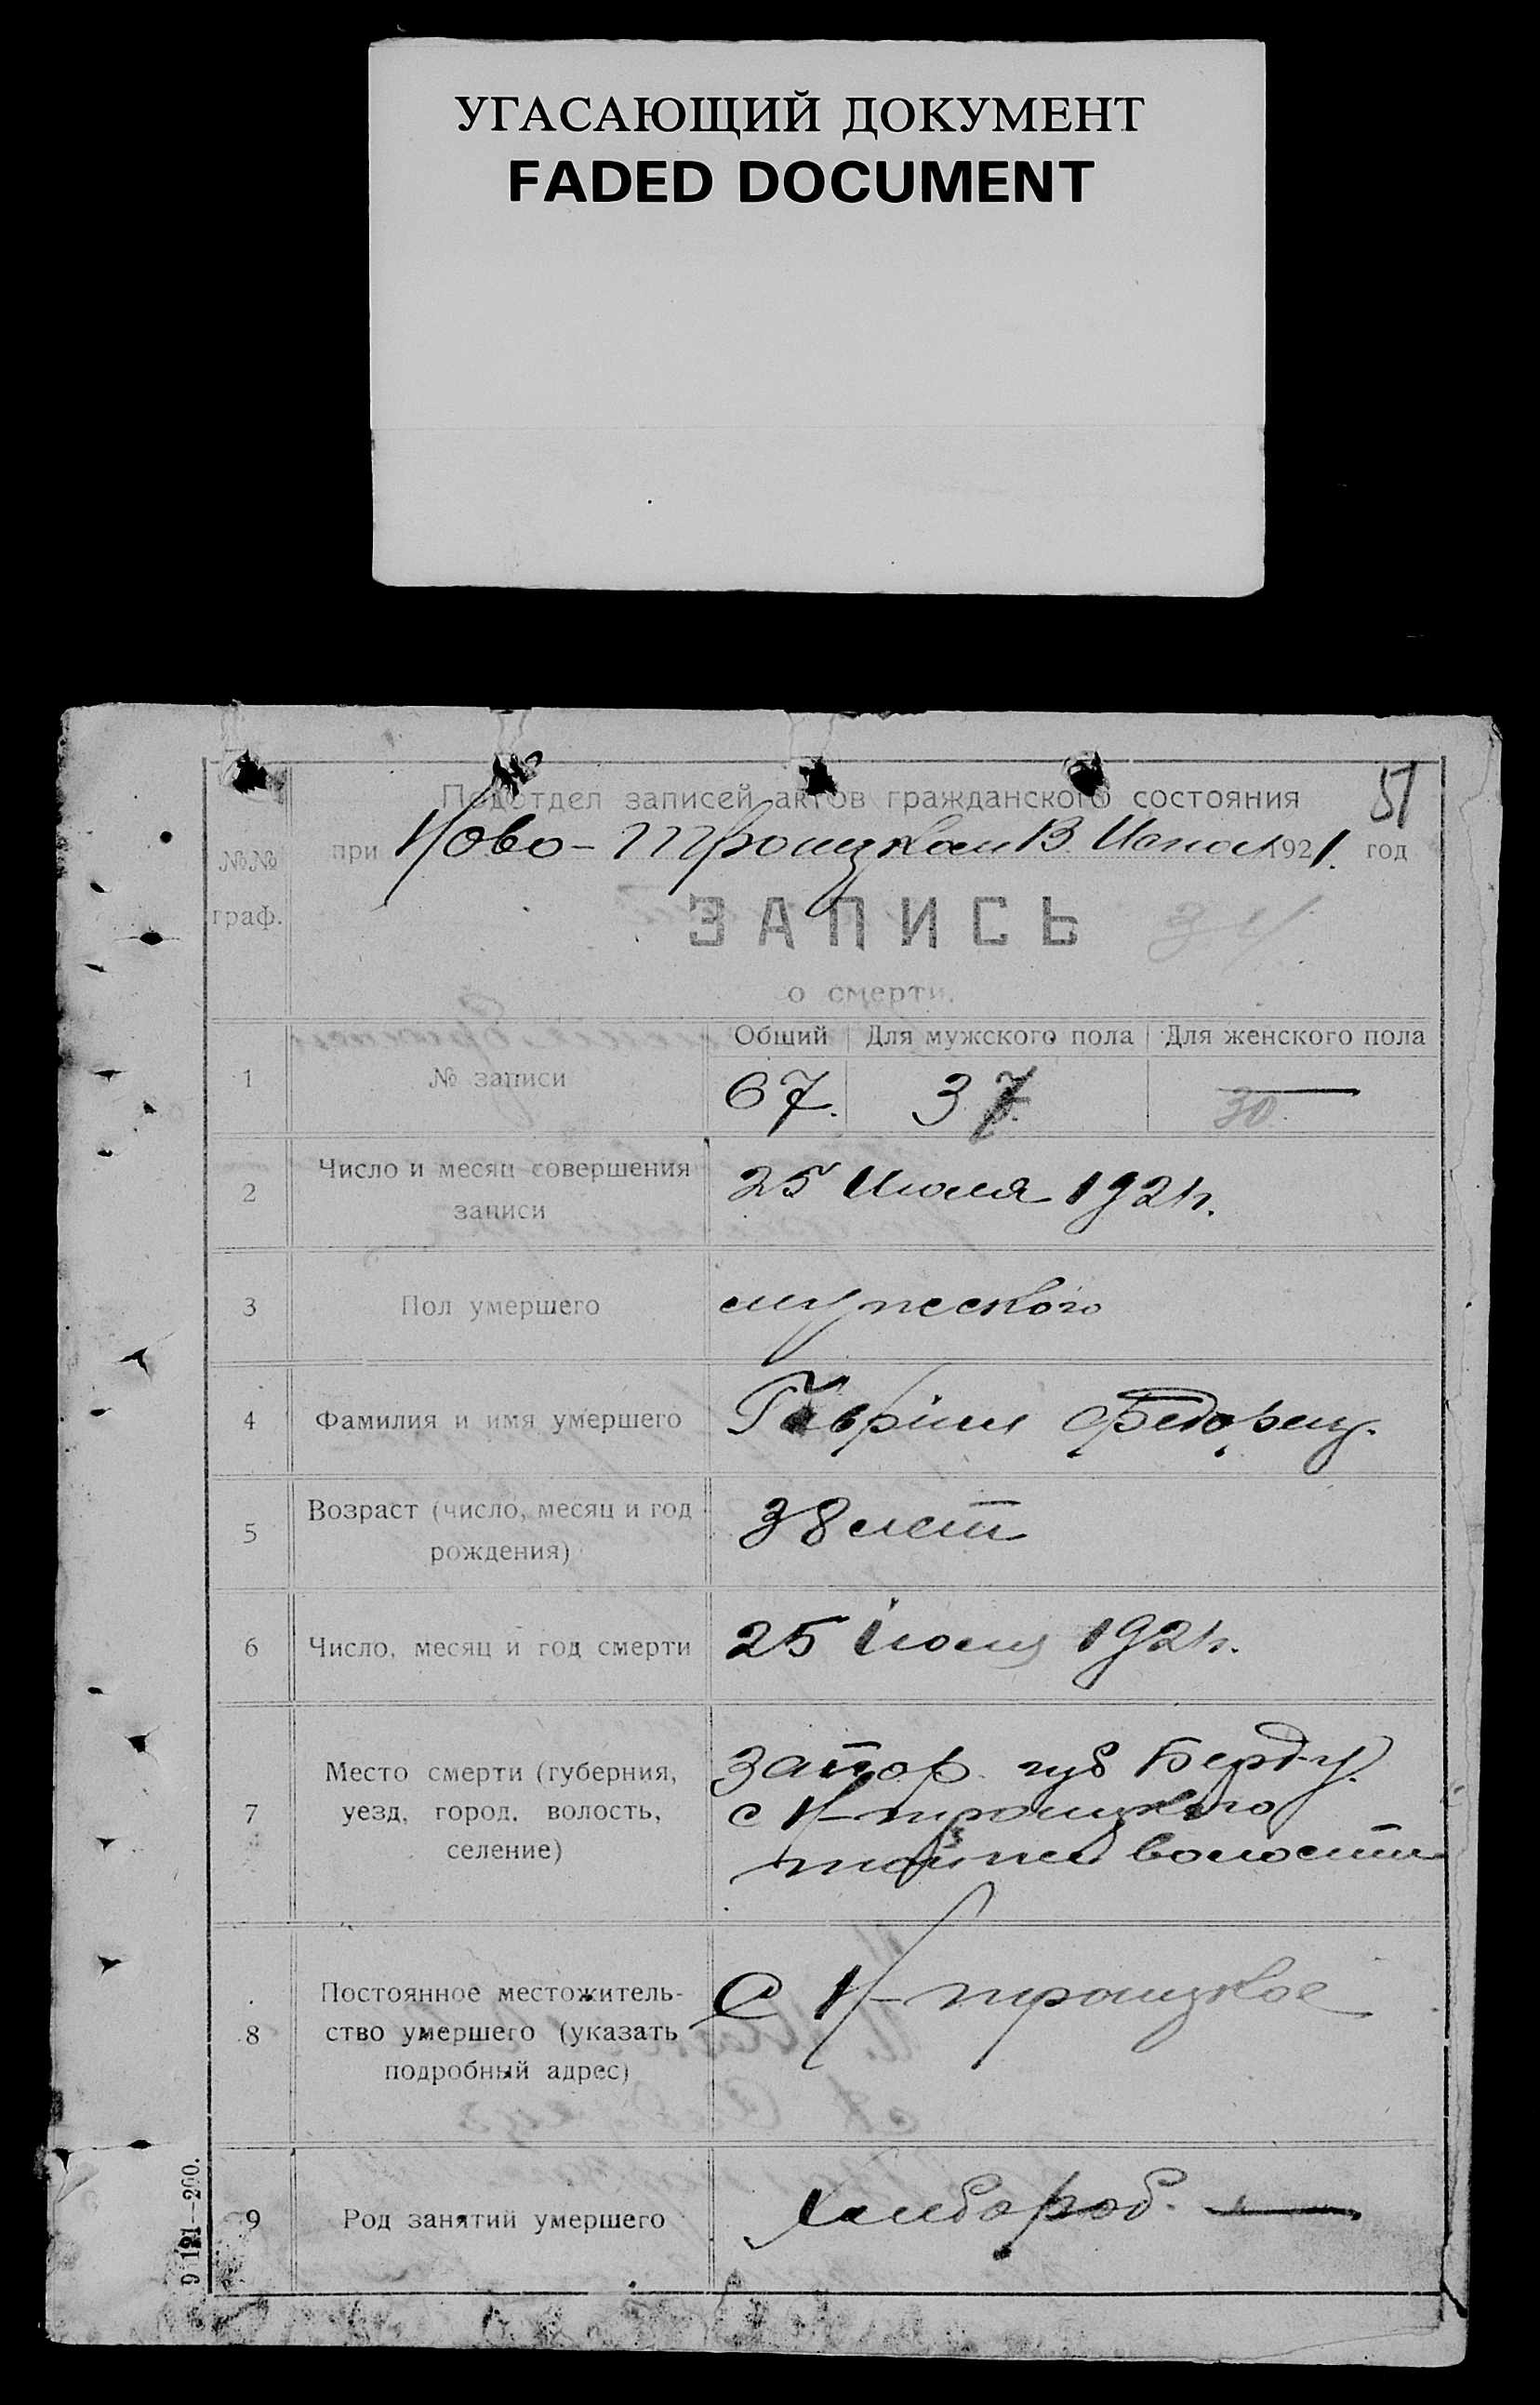 УГАСАЮЩИЙ ДОКУМЕНТ
FADED DOCUMENT
51
Подотдел записей актов гражданского состояния
№№ граф.
при Ново-Троицком В. 1921. год
ЗАПИСЬ
о смерти.
Общий Для мужского пола Для женского пола
1 № записи 67. 37. 30
2 Число и месяц совершения записи 25 Июля 1921г.
3 Пол умершего мужеского
4 Фамилия и имя умершего Гавріил Федорец.
5 Возраст (число, месяц и год рождения) 38 лет
6 Число, месяц и год смерти 25 Июля 1921г.
7 Место смерти (губерния, уезд, город, волость, селение) Запор. губ Берд у.
с Н-троицкого
тойже волости
8 Постоянное местожитель-
ство умершего (указать
подробный адрес) С Н-троицкое
9 Род занятий умершего Хлебороб.
9 121—200.